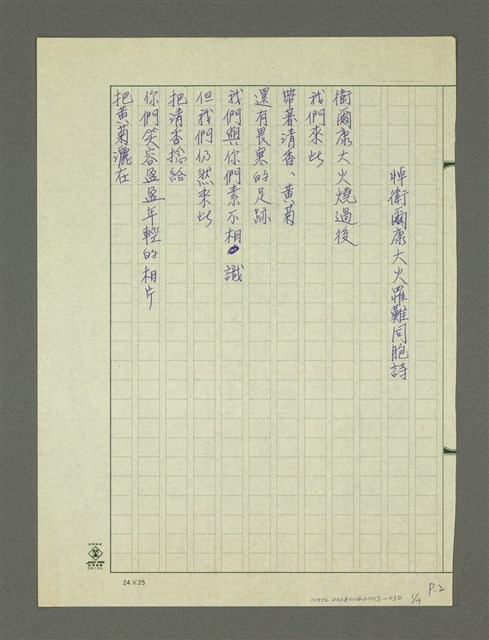 悼衛爾康大火罹難同胞詩
衛爾康大火燒過後
我們來此
帶著清香、黃菊
還有畏寒的足跡
我們與你們素不相識
但我們仍然來此
把清香捻給
你們笑容盈盈年輕的相片
把黃菊灑在
24×25
P.2
1/4